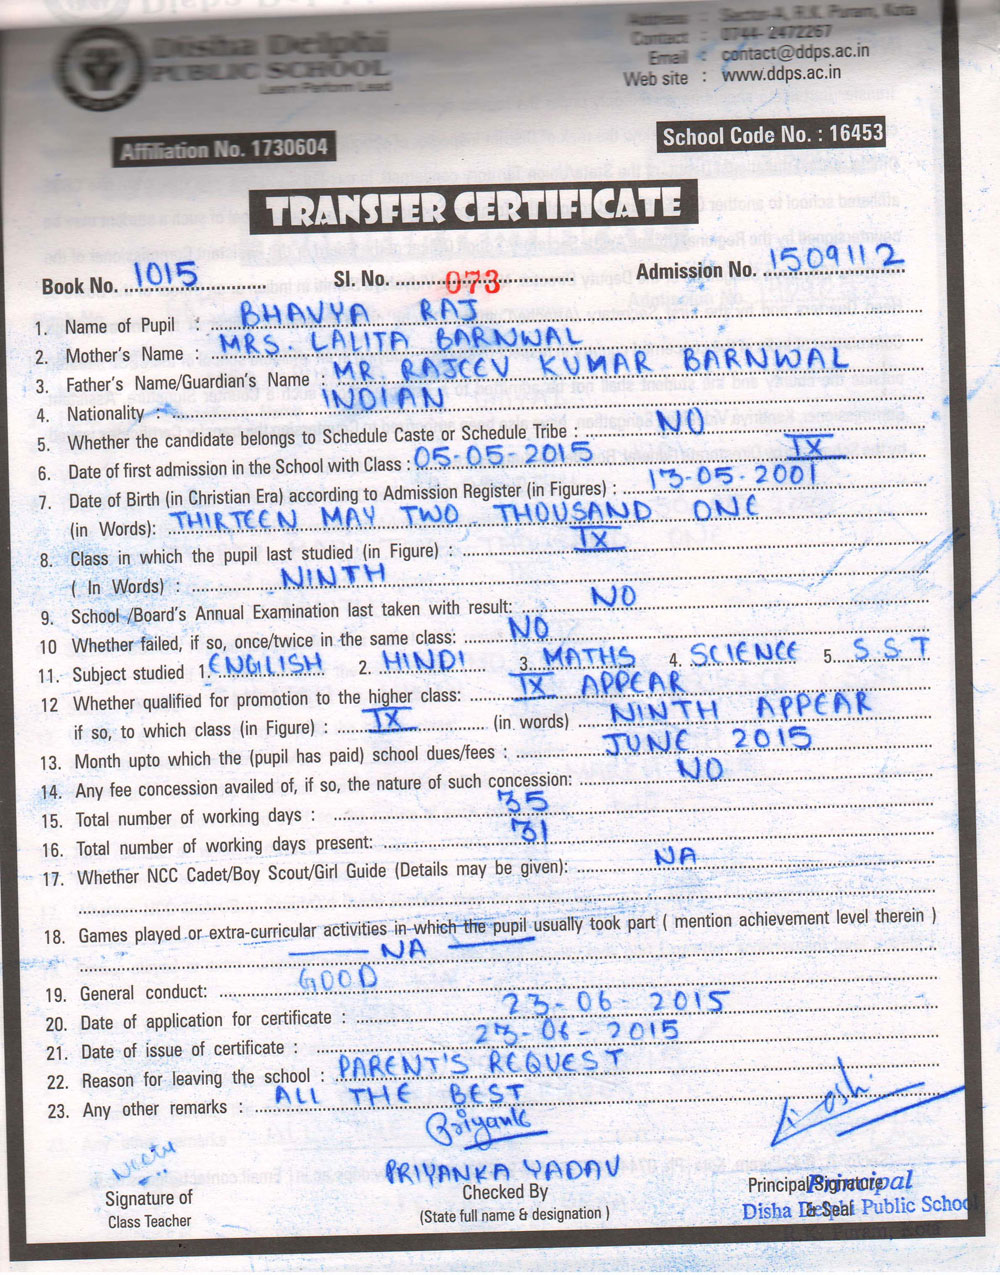 Disha Delphi
PUBLIC SCHOOL
Learn Perform Lead
Address : Sector-A, R.K. Puram, Kota
Contact : 0744- 2472267
Email : contact@ddps.ac.in
Web site : www.ddps.ac.in
Affiliation No. 1730604
School Code No. : 16453
TRANSFER CERTIFICATE
Book No. 1015 Sl. No. 073 Admission No. 1509112
1. Name of Pupil : BHAVYA RAJ
2. Mother's Name : MRS. LALITA BARNWAL
3. Father's Name/Guardian's Name : MR. RAJEEV KUMAR BARNWAL
4. Nationality : INDIAN
5. Whether the candidate belongs to Schedule Caste or Schedule Tribe : NO
6. Date of first admission in the School with Class : 05-05-2015 IX
7. Date of Birth (in Christian Era) according to Admission Register (in Figures) : 13-05-2001
(in Words): THIRTEEN MAY TWO THOUSAND ONE
8. Class in which the pupil last studied (in Figure) : IX
( In Words) : NINTH
9. School /Board's Annual Examination last taken with result: NO
10 Whether failed, if so, once/twice in the same class: NO
11. Subject studied 1. ENGLISH 2. HINDI 3. MATHS 4. SCIENCE 5. S.S.T
12 Whether qualified for promotion to the higher class: IX APPEAR
if so, to which class (in Figure) : IX (in words) NINTH APPEAR
13. Month upto which the (pupil has paid) school dues/fees : JUNE 2015
14. Any fee concession availed of, if so, the nature of such concession: NO
15. Total number of working days : 35
16. Total number of working days present: 31
17. Whether NCC Cadet/Boy Scout/Girl Guide (Details may be given): NA
18. Games played or extra-curricular activities in which the pupil usually took part ( mention achievement level therein )
NA
19. General conduct: GOOD
20. Date of application for certificate : 23-06-2015
21. Date of issue of certificate : 23-06-2015
22. Reason for leaving the school : PARENT'S REQUEST
23. Any other remarks : ALL THE BEST
Priyanka
PRIYANKA YADAV
Signature of
Class Teacher
Checked By
(State full name & designation )
Principal Signature
& Seal
Principal
Disha Delphi Public School